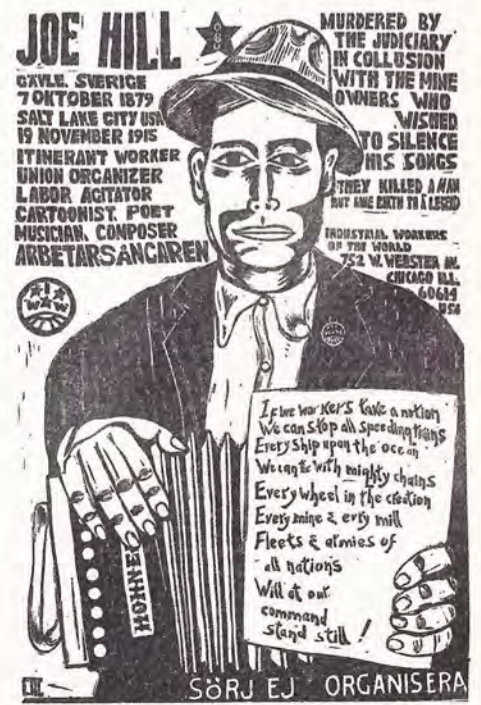 JOE HILL
GÄVLE. SVERIGE
7 OKTOBER 1879
SALT LAKE CITY USA
19 NOVEMBER 1915
ITINERANT WORKER
UNION ORGANIZER
LABOR AGITATOR
CARTOONIST. POET
MUSICIAN, COMPOSER
ARBETARSÅNGAREN
IWW
MURDERED BY
THE JUDICIARY
IN COLLUSION
WITH THE MINE
OWNERS WHO
WISHED
TO SILENCE
HIS SONGS
THEY KILLED A MAN
BUT GAVE BIRTH TO A LEGEND
INDUSTRIAL WORKERS
OF THE WORLD
752 W. WEBSTER AV.
CHICAGO ILL.
60614
USA
If we workers take a notion
We can stop all speeding trains
Every ship upon the ocean
We can tie with mighty chains
Every wheel in the creation
Every mine & evry mill
Fleets & armies of
all nations
Will at our
command
stand still!
HOHNE
SÖRJ EJ ORGANISERA